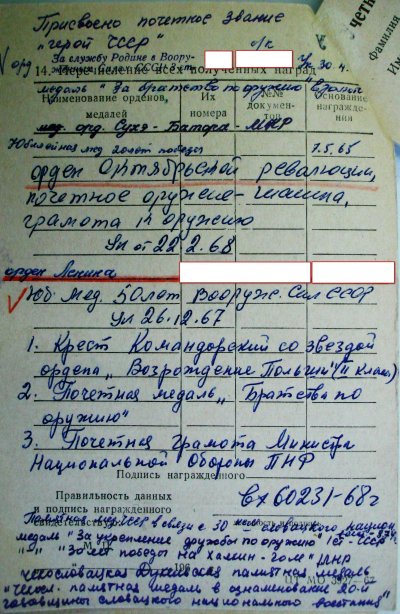 Присвоено почетное звание
"герой ЧССР"
За службу Родине в Воору-
орд. женных Силах СССР 3 ст. Ук 30 4.
14. Перечисление всех полученных наград
медаль "За братство по оружию"
Наименование орденов, медалей
Их номера
№№ документов
Основание награждения
орд Сухэ-Батора - МНР
Юбилейная мед 20 лет победы 7.5.65
орден Октябрьской революции,
почетное оружие - шашка,
грамота к оружию
Ук от 22.2.68
орден Ленина
Юб. мед. 50 лет Вооруж. Сил СССР
Ук 26.12.67
1. Крест Командорский со звездой
ордена "Возрождение Польши" (II класс)
2. Почетная медаль "Братства по
оружию"
3. Почетная грамота Министра
Национальной Обороны ПНР
Подпись награжденного
Правильность данных
и подпись награжденного
свидетельствую:
вх 60231-68г
в связи с 30
медаль "За укрепление дружбы по оружию" ЧССР
"30 лет победы на халхин-голе" МНР
М. П. 196
чехословацкая Дукельская памятная медаль
"Чехосл. памятная медаль в ознаменование 20-й
годовщины словацкого национального восстания"